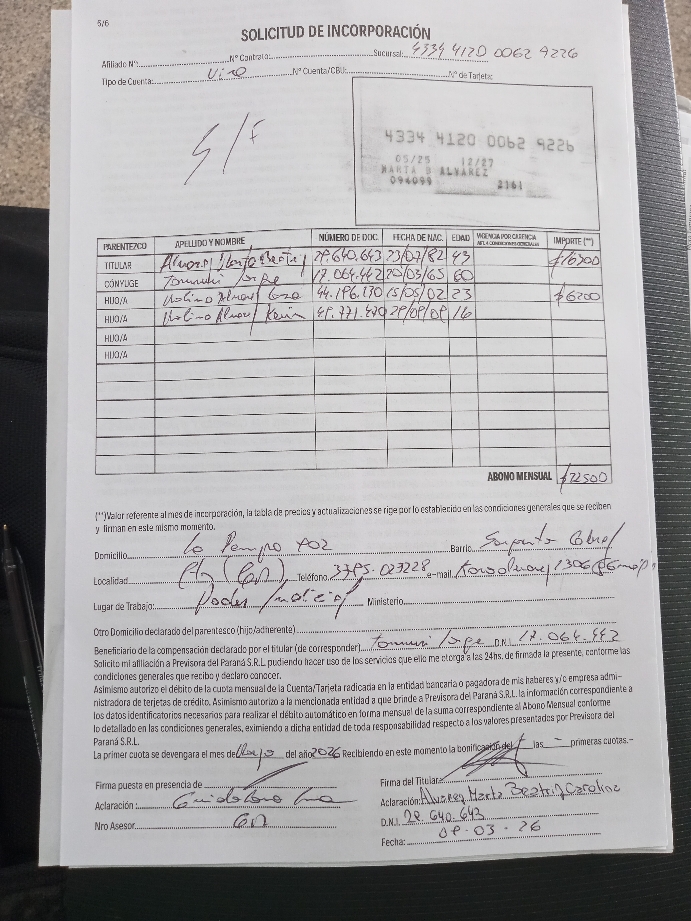 6/6
SOLICITUD DE INCORPORACIÓN
Afiliado Nº: Nº Contrato: Sucursal: 4334 4120 0062 9226
Tipo de Cuenta: Visa Nº Cuenta/CBU: Nº de Tarjeta:
S/F
4334 4120 0062 9226
05/25 12/27
MARTA B ALVAREZ
094099 2161
PARENTEZCO APELLIDO Y NOMBRE NÚMERO DE DOC. FECHA DE NAC. EDAD VIGENCIA POR CARENCIA ART. 4 CONDICIONES GENERALES IMPORTE (**)
TITULAR Alvarez Marta Beatriz 29.640.643 23/07/82 43 $16300
CÓNYUGE Jorge 17.064.442 20/03/65 60
HIJO/A Molino Alvarez 44.196.130 15/05/02 23 $6200
HIJO/A Molino Alvarez Kevin 49.771.470 29/09/09 16
HIJO/A
HIJO/A
ABONO MENSUAL $22500
(**)Valor referente al mes de incorporación, la tabla de precios y actualizaciones se rige por lo establecido en las condiciones generales que se reciben
y firman en este mismo momento.
Domicilio La Pampa 702 Barrio: Sargento Cabral
Localidad Teléfono. 3795-027228 e-mail.
Lugar de Trabajo: Poder Judicial Ministerio
Otro Domicilio declarado del parentesco (hijo/adherente)
Beneficiario de la compensación declarado por el titular (de corresponder) Jorge D.N.I. 17.064.442
Solicito mi afiliación a Previsora del Paraná S.R.L pudiendo hacer uso de los servicios que ello me otorga a las 24hs. de firmada la presente, conforme las
condiciones generales que recibo y declaro conocer.
Asimismo autorizo el débito de la cuota mensual de la Cuenta/Tarjeta radicada en la entidad bancaria o pagadora de mis haberes y/o empresa admi-
nistradora de tarjetas de crédito. Asimismo autorizo a la mencionada entidad a que brinde a Previsora del Paraná S.R.L. la información correspondiente a
los datos identificatorios necesarios para realizar el débito automático en forma mensual de la suma correspondiente al Abono Mensual conforme
lo detallado en las condiciones generales, eximiendo a dicha entidad de toda responsabilidad respecto a los valores presentados por Previsora del
Paraná S.R.L.
La primer cuota se devengara el mes de Mayo del año 2026 Recibiendo en este momento la bonificación del las primeras cuotas.-
Firma puesta en presencia de
Aclaración:
Nro Asesor
Firma del Titular:
Aclaración: Alvarez Marta Beatriz Carolina
D.N.I. 29.640.643
Fecha: 09-03-26